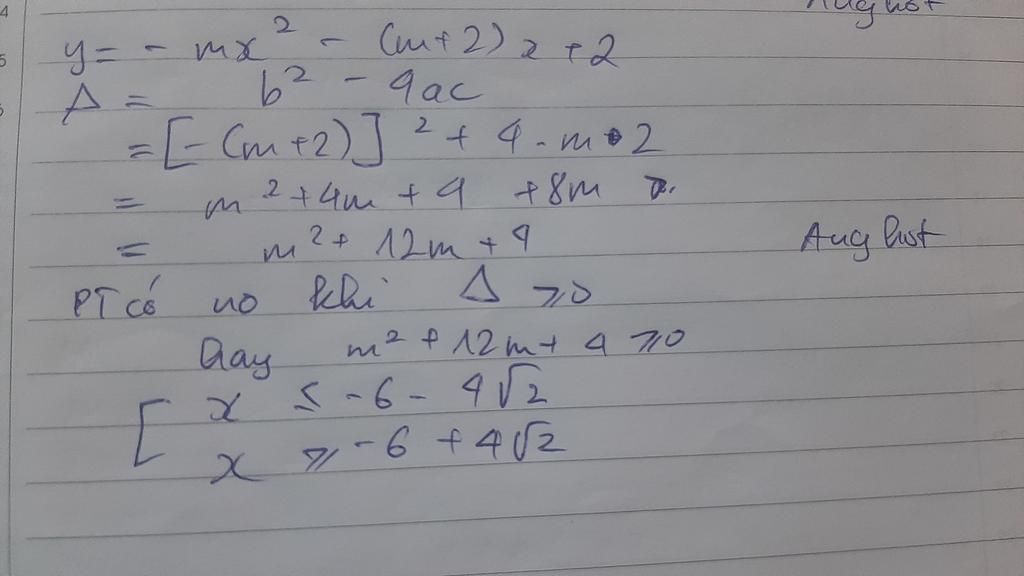 Aug hot
y = - mx² - (m+2) x + 2
Δ = b² - 4ac
= [-(m+2)]² + 4 - m • 2
= m² + 4m + 4 + 8m
= m² + 12m + 4
Aug hot
PT có no khi Δ ≥ 0
Hay m² + 12m + 4 ≥ 0
[ x ≤ -6 - 4√2
x ≥ -6 + 4√2